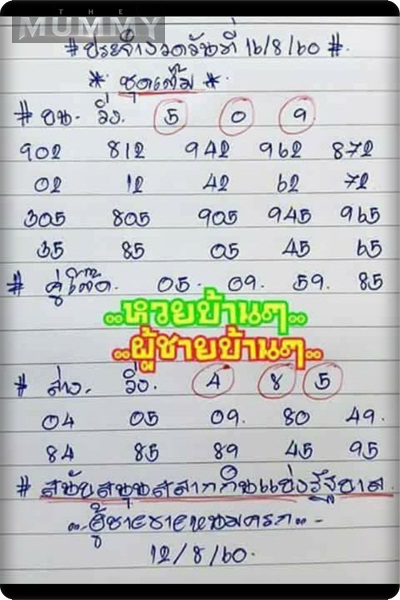 THE
MUMMY
# ประจำงวดวันที่ 16/8/60 #.
* ชุดเต็ม *.
# บน. วิ่ง. 5 0 9
902 812 942 962 872
02 12 42 62 72
305 805 905 945 965
35 85 05 45 65
# คู่โต๊ด. 05. 09. 59. 85
..หวยบ้านๆ..
..ผู้ชายบ้านๆ..
# ล่าง. วิ่ง. 4 8 5
04 05 09. 80 49.
84 85 89 45 95
# สนับสนุนสลากกินแบ่งรัฐบาล.
12/8/60.